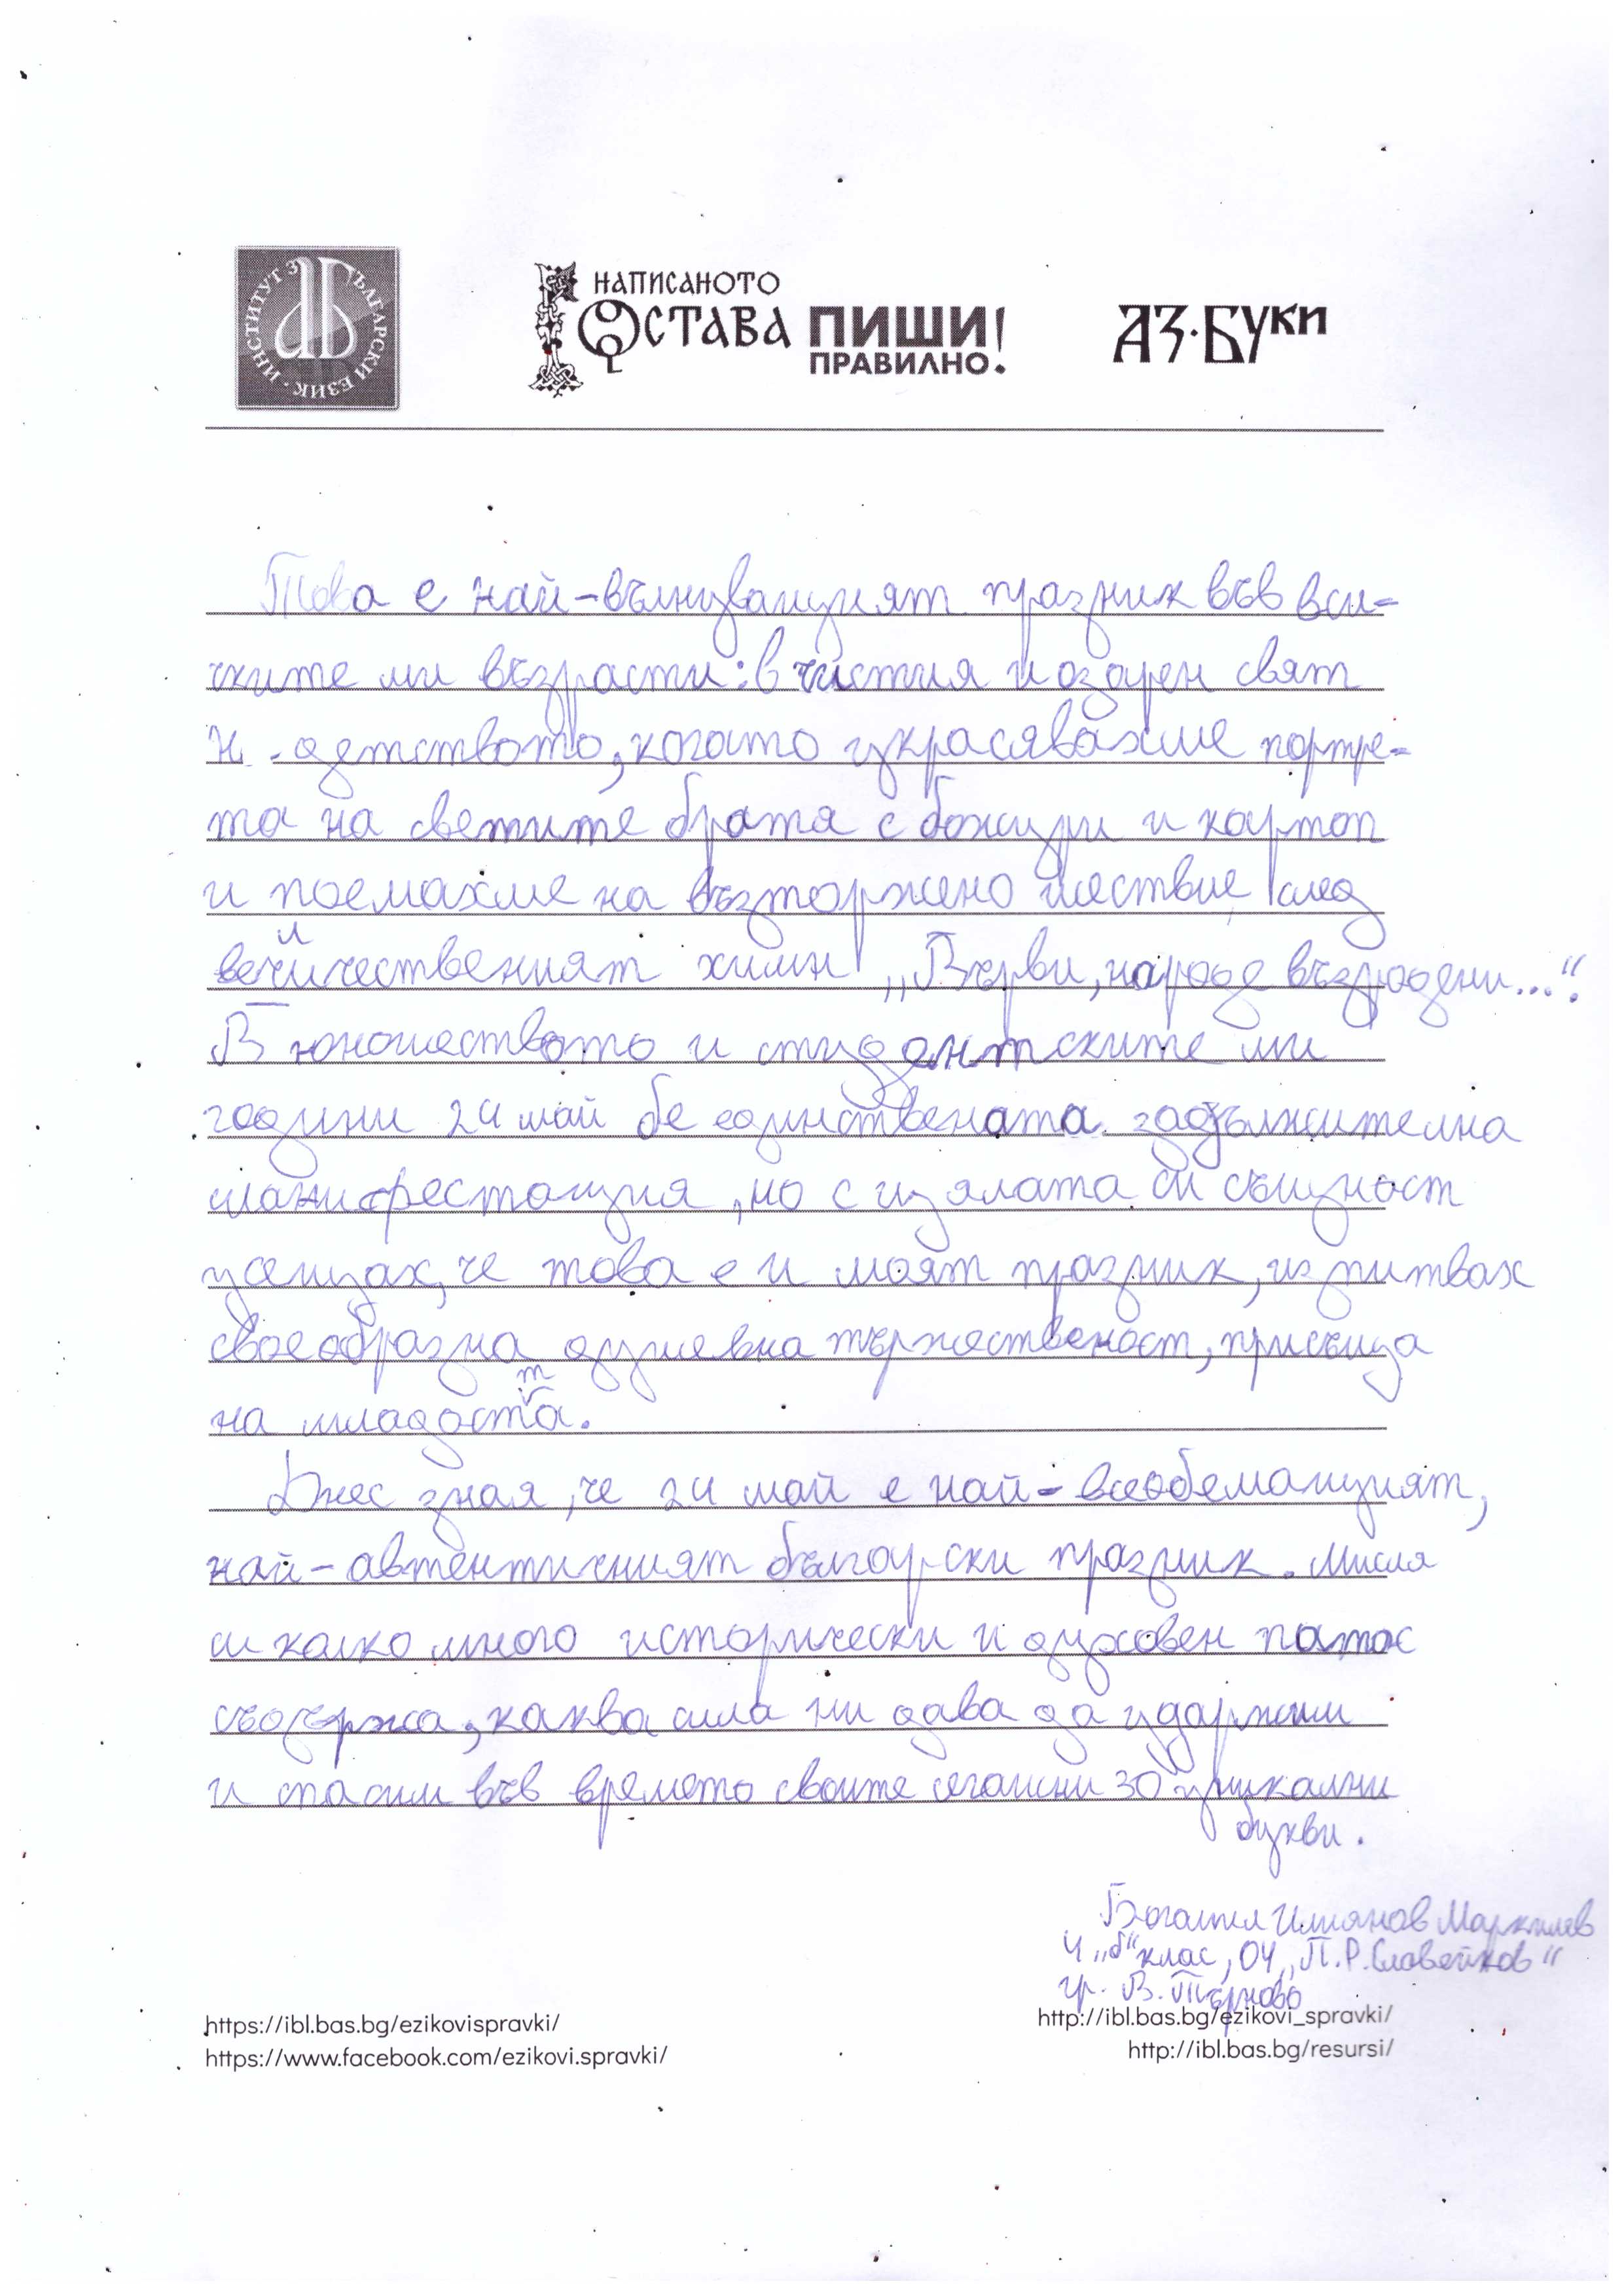 ИНСТИТУТ ЗА БЪЛГАРСКИ ЕЗИК
НАПИСАНОТО
ОСТАВА ПИШИ!
ПРАВИЛНО.
АЗ·БУКИ
Това е най-вълнуващият празник във вси-
чките ми възрасти: в чистия и озарен свят
н детството, когато украсявахме портре-
та на светите братя с божури и картоп
и поемахме на възторжено шествие след
величественият химн „Върви, народе възродени...“.
В юношеството и студентските ми
години 24 май бе единствената задължителна
манифестация, но с цялата си същност
усещах, че това е и моят празник, изпитвах
своеобразна душевна тържественост, присъща
на младостта.
Днес зная, че 24 май е най-всеобемащият,
най-автентичният български празник. Мисля
си колко много исторически и духовен патос
съдържа, каква сила ни дава да удържим
и спасим във времето своите сегашни 30 уникални
букви.
Богомил
4 „б“ клас, ОУ „П.Р. Славейков“
гр. В. Търново
https://ibl.bas.bg/ezikovispravki/
http://ibl.bas.bg/ezikovi_spravki/
https://www.facebook.com/ezikovi.spravki/
http://ibl.bas.bg/resursi/